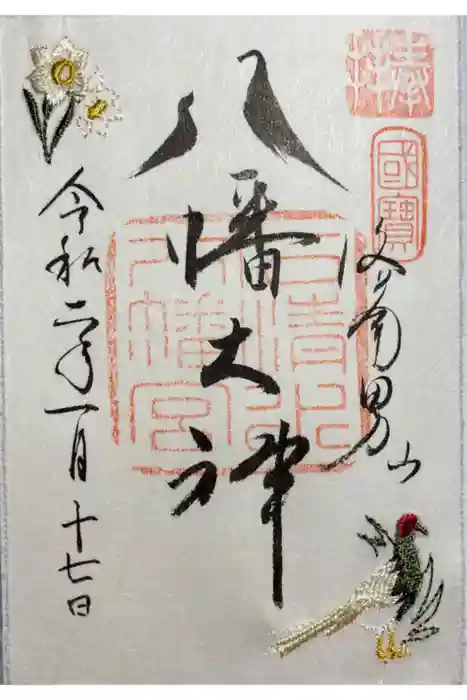 奉拜
國寶
男山
八幡大神
石清水
八幡宮
令和二年一月十七日